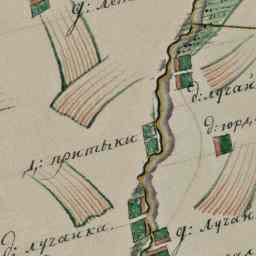 д: лучан
д: горд
д: притыки
д: лучанка
д: лучан